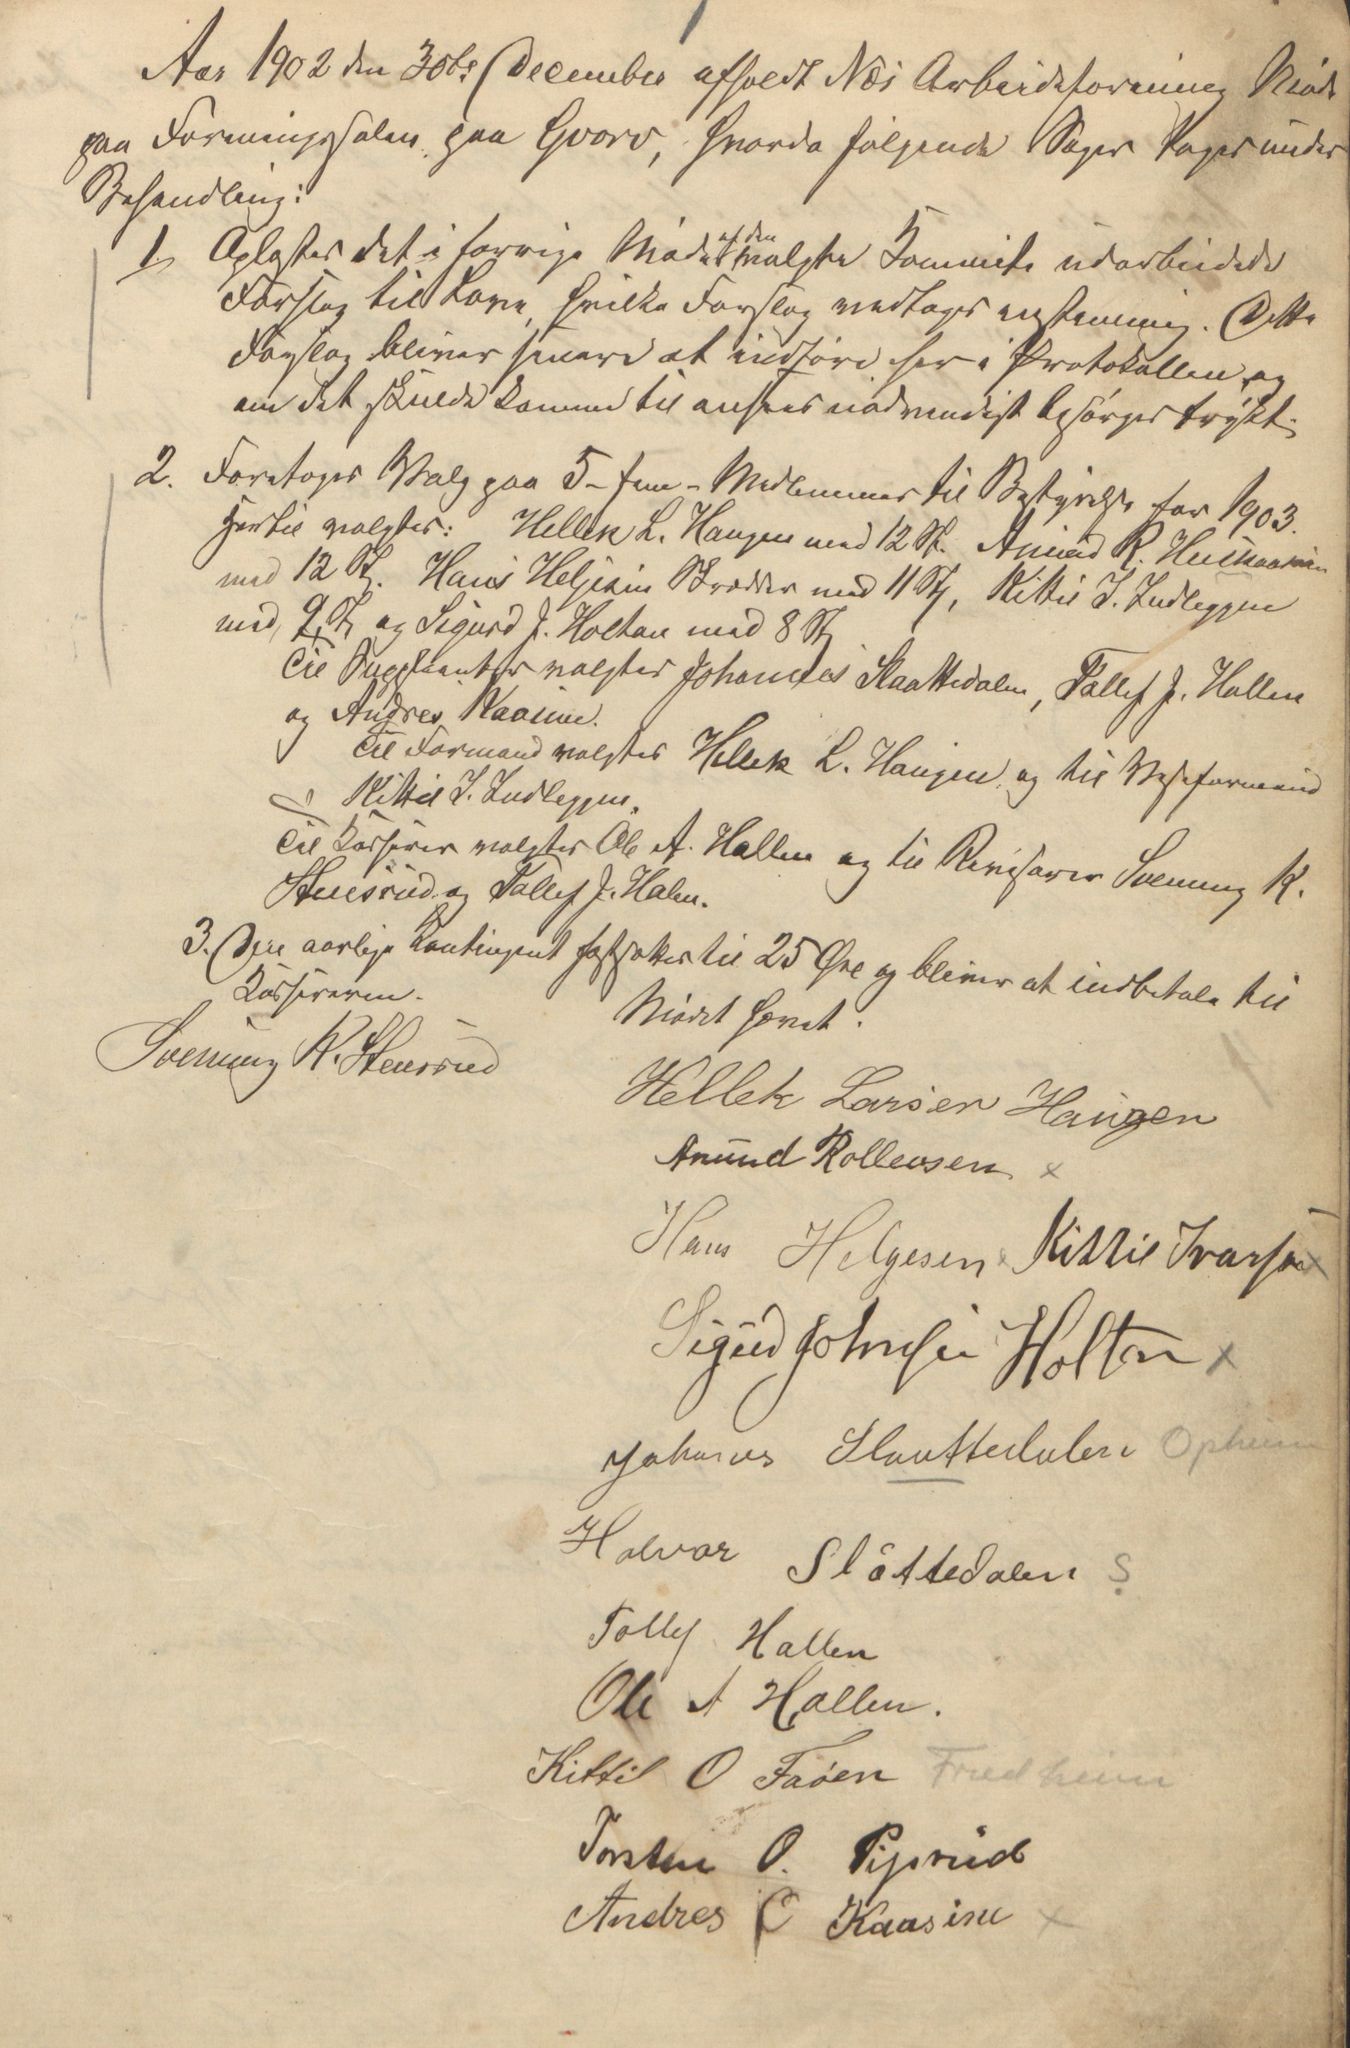 Aar 1902 den 30te December afholdt Nes Arbeideforening Møde
paa Foreningssalen paa Gvarv, hvorda følgende Sager toges under
Behandling:
1, Oplæstes det i forrige Møde af den valgte Kommite udarbeidede
Forslag til Love, hvilke Forslag vedtoges enstemmig. Dette
Forslag bliver senere at indføre her i Protokollen og
om det skulde komme til ansees nødvendigt besørges trykt.
2. Foretoges Valg paa 5 - fem - Medlemmer til Bestyrelse for 1903.
Hertil valgtes: Hellek L. Haugen med 12 St. Amund R.
med 12 St. Hans Heljesen med 11 St, Kittil I. Indleggen
med 9 St, og Sigurd J. Holtan med 8 St,
Til Suppleanter valgtes Johannes Slaattedalen, Tallef J. Hallen
og Andres Kaasine.
Til Formand valgtes Hellek L. Haugen og til Viseformand
Kittil I. Indleggen.
Til Kasserer valgtes Ole A. Hallen og til Revisorer Svenung K.
Stensrud og Tallef J. Halen.
3. Den aarlige Kontingent fastsattes til 25 Øre og bliver at indbetale til
Kassereren.
Mødet hævet.
Svenung K. Stensrud
Hellek Larsen Haugen
Amund Rollevsen x
Hans Helgesen x Kittil Ivarsen x
Sigurd Johnsen Holtan x
Johanes Slaattedalen Opheim
Halvor Slåttedalen S
Tallef Hallen
Ole A Hallen.
Kittil O Taøen Fredheim
Torsten O. Piprud
Andres O Kaasine x